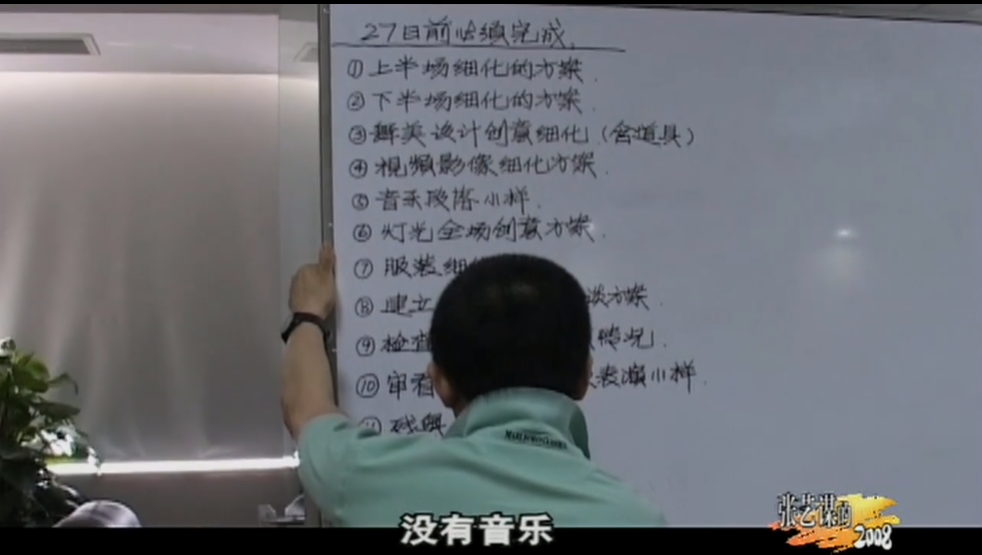 27日前必须完成.
① 上半场细化的方案.
② 下半场细化的方案.
③ 舞美设计创意细化(含道具)
④ 视频影像细化方案.
⑤ 音乐段落小样.
⑥ 灯光全场创意方案.
⑦ 服装细
⑧ 建立 谈方案.
⑨ 检查 情况.
⑩ 审看 表演小样.
⑪ 残奥
没有音乐
张艺谋的
2008